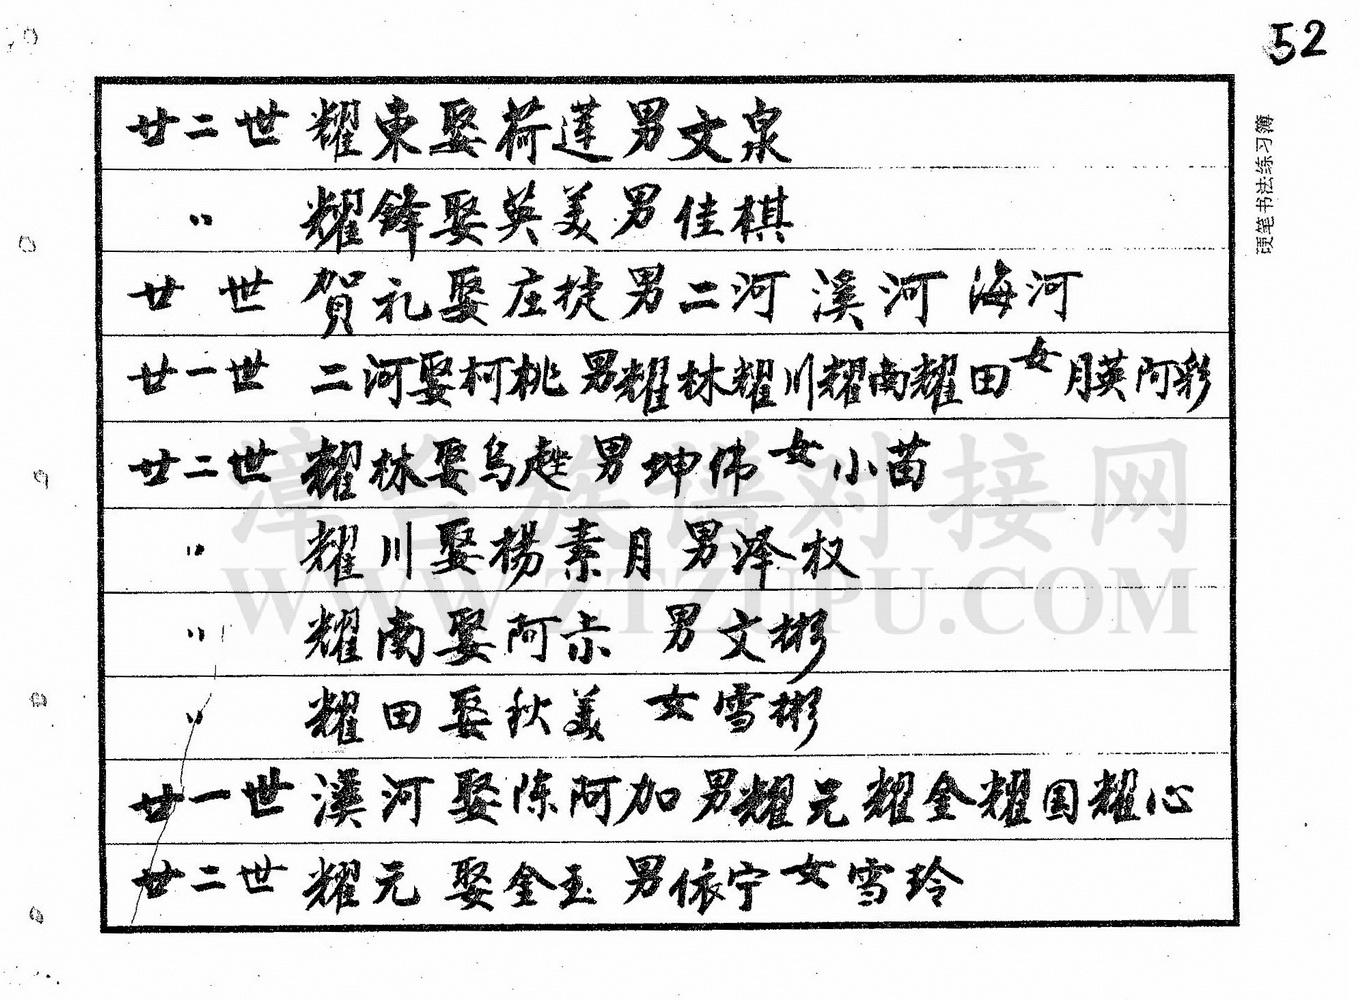 52
硬笔书法练习簿
廿二世 耀東娶荷莲男文泉
〃 耀鋒娶英美男佳棋
廿世 賀礼娶庄捷男二河 溪河 海河
廿一世 二河娶柯桃 男耀林耀川耀南耀田女月英阿彩
廿二世 耀林娶乌 男坤伟女小苗
〃 耀川娶楊素月 男泽权
〃 耀南娶阿 男文彬
〃 耀田娶秋美 女雪彬
廿一世 溪河 娶陈阿加 男耀元耀金耀国耀心
廿二世 耀元 娶金玉 男依宁女雪玲
漳台族谱对接网
WWW.ZTZUPU.COM